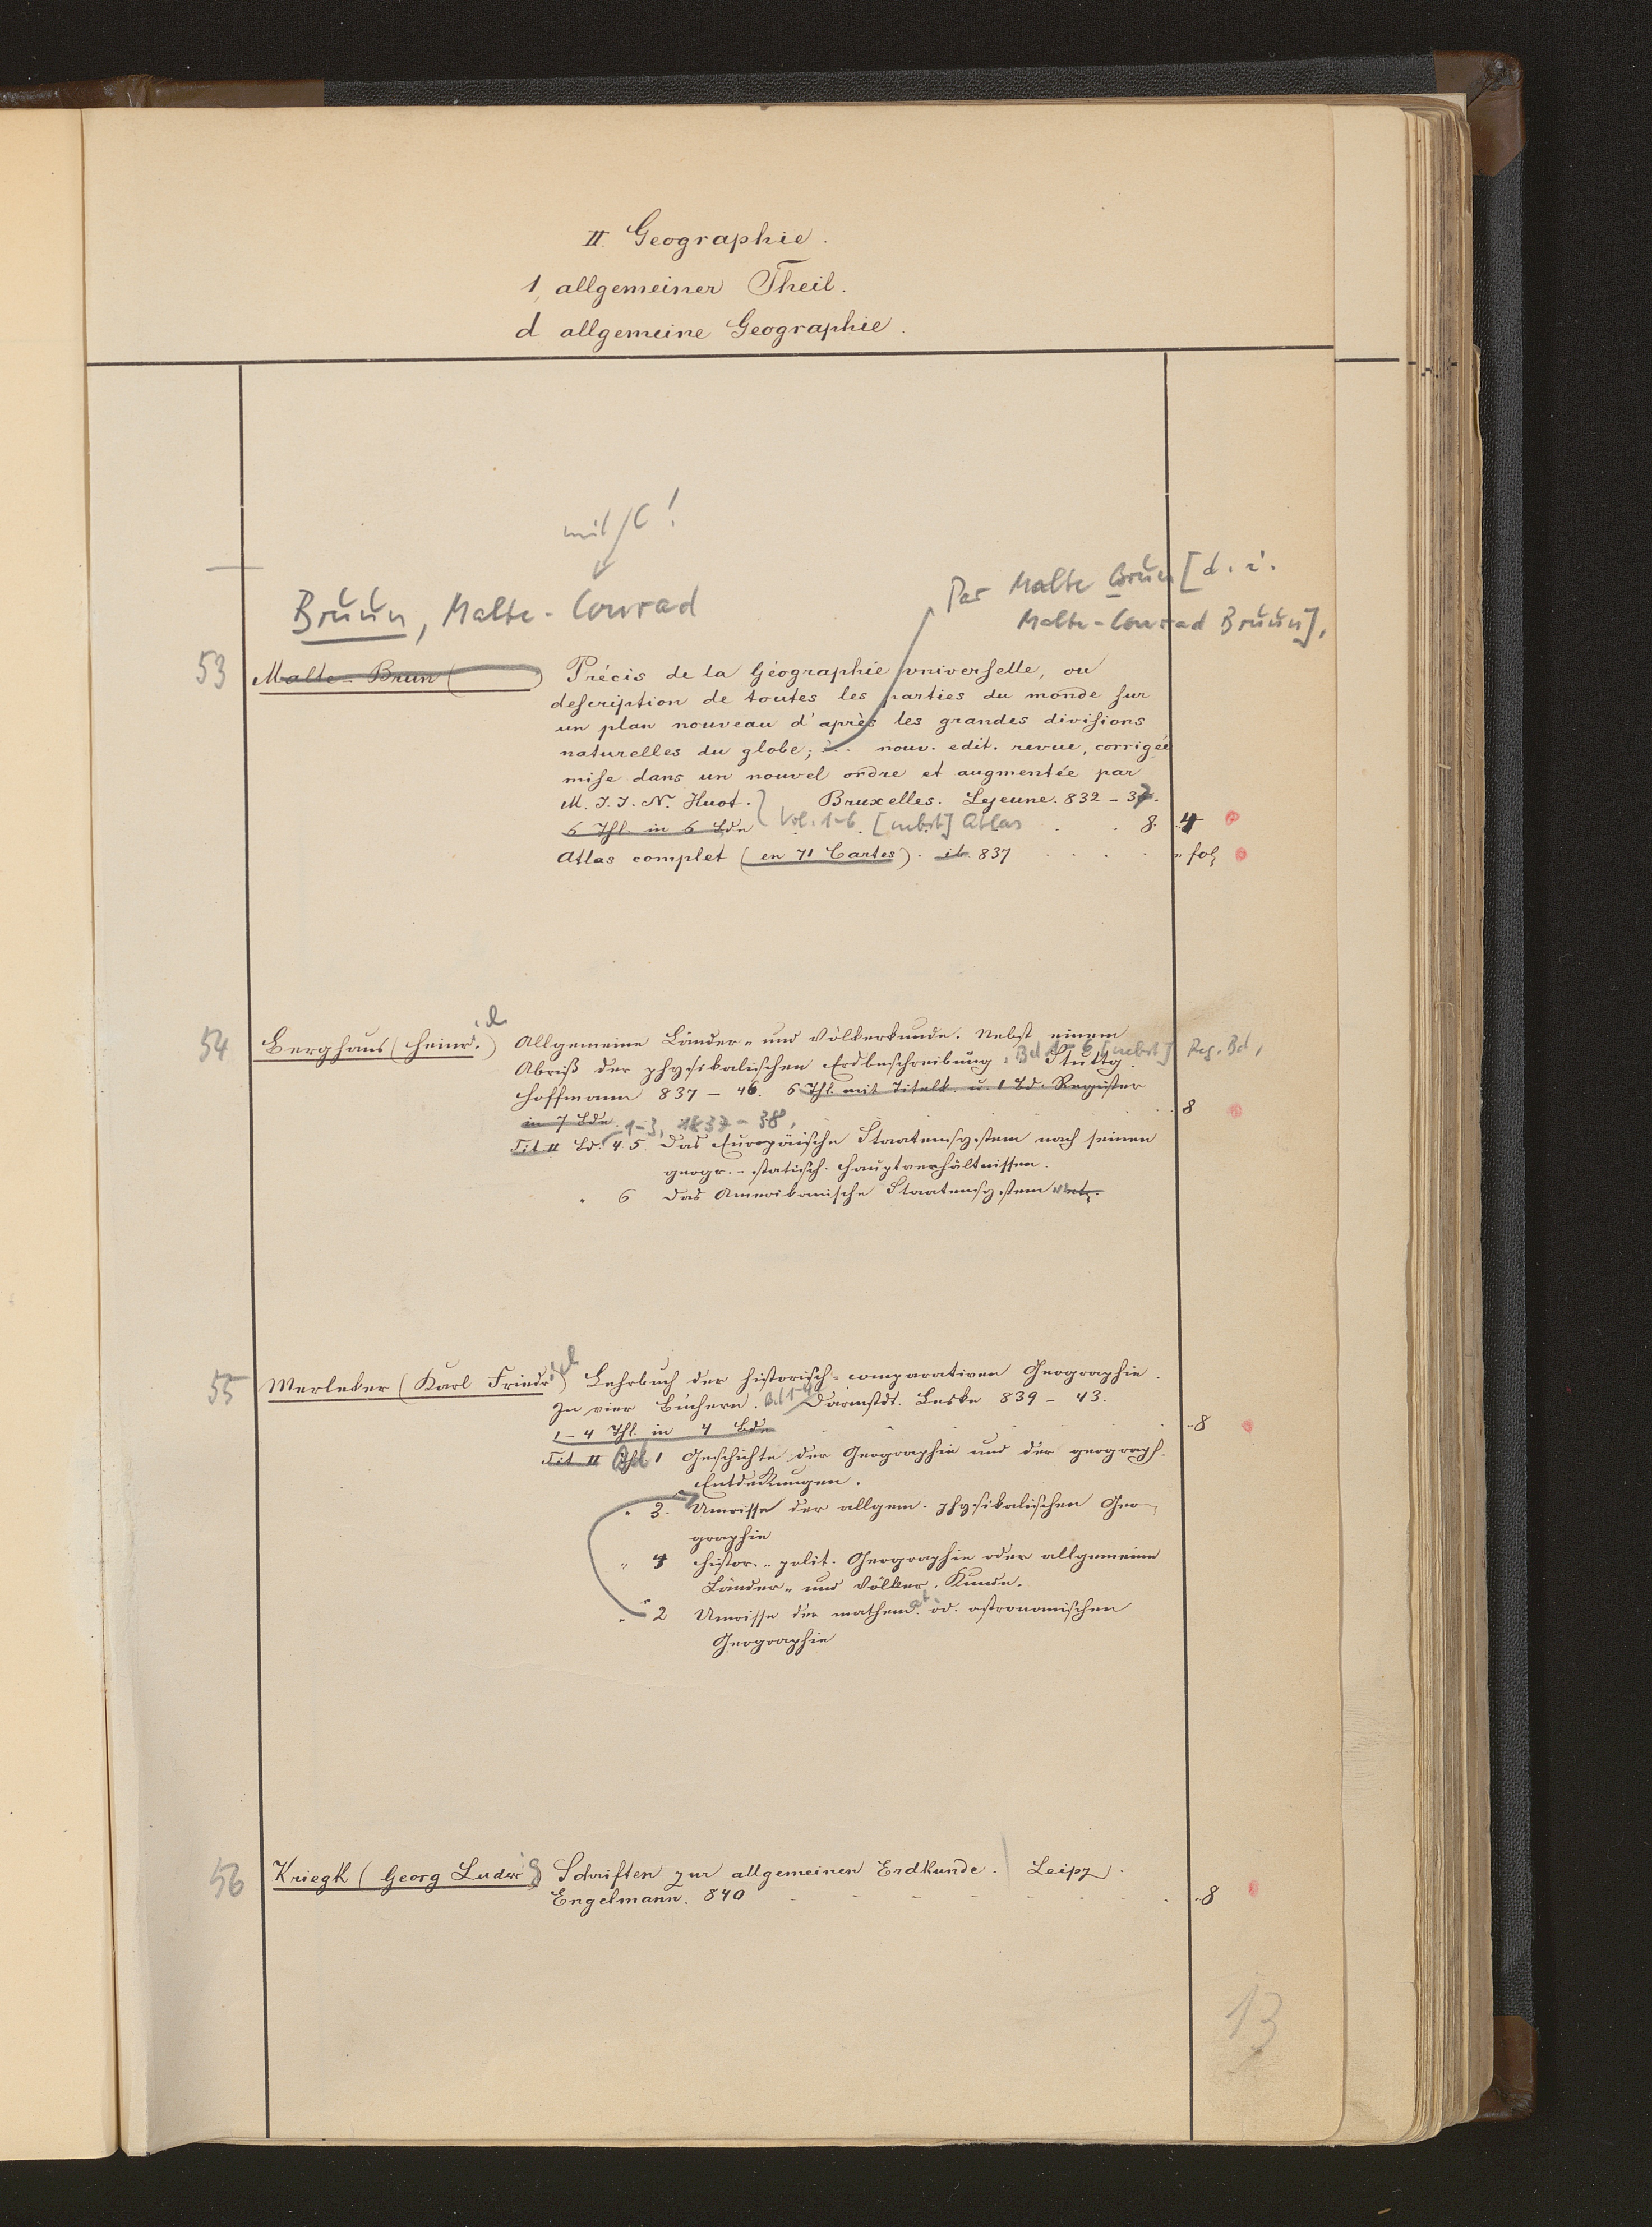 II. Geographie.
1, allgemeiner Theil.
d allgemeine Geographie.
mit C!
Bruun, Malte-Conrad
Par Malte Brun [d. i.
Malte-Conrad Bruun],
53 Malte-Brun ( ) Précis de la Géographie universelle, ou
description de toutes les parties du monde sur
un plan nouveau d'après les grandes divisions
naturelles du globe; nouv. edit. revue, corrigée
mise dans un nouvel ordre et augmentée par
M. J. J. N. Huot. Bruxelles. Lejeune. 832 - 37.
6 Thl. in 6 Bde Vol. 1-6. [nebst] Atlas 8. 4
Atlas complet (en 71 Cartes). ib. 837 " fol
54 Berghaus (Heinr.) Allgemeine Länder- und Völkerkunde. Nebst einem
Abriß der physikalischen Erdbeschreibung, Bd 1-6 [nebst] Reg. Bd, Stuttg.
Hoffmann 837 - 46. 6 Thl. mit Titelk. u. 1 Bd. Register
in 7 Bde. 1-3, 1837-38, 8
Tit II Bd. 4. 5. Das Europäische Staatensystem nach seinen
geogr.-statisch. Hauptverhältnissen.
" 6 Das Amerikanische Staatensystem
55 Merleker (Karl Friedr) Lehrbuch der historisch-comparativen Geographie.
In vier Büchern. Bd 1-4 Darmstdt. Leske 839 - 43.
1-4 Thl. in 4 Bde 8
Tit II Thl Bd 1 Geschichte der Geographie und der geograph.
Entdeckungen.
" 3. Umrisse der allgem. physikalischen Geo-
graphie
" 4 histor.-polit. Geographie oder allgemeine
Länder- und Völker-Kunde.
" 2 Umrisse der mathemat. od. astronomischen
Geographie
56 Kriegk (Georg Ludwig) Schriften zur allgemeinen Erdkunde. Leipz.
Engelmann. 840 8
13